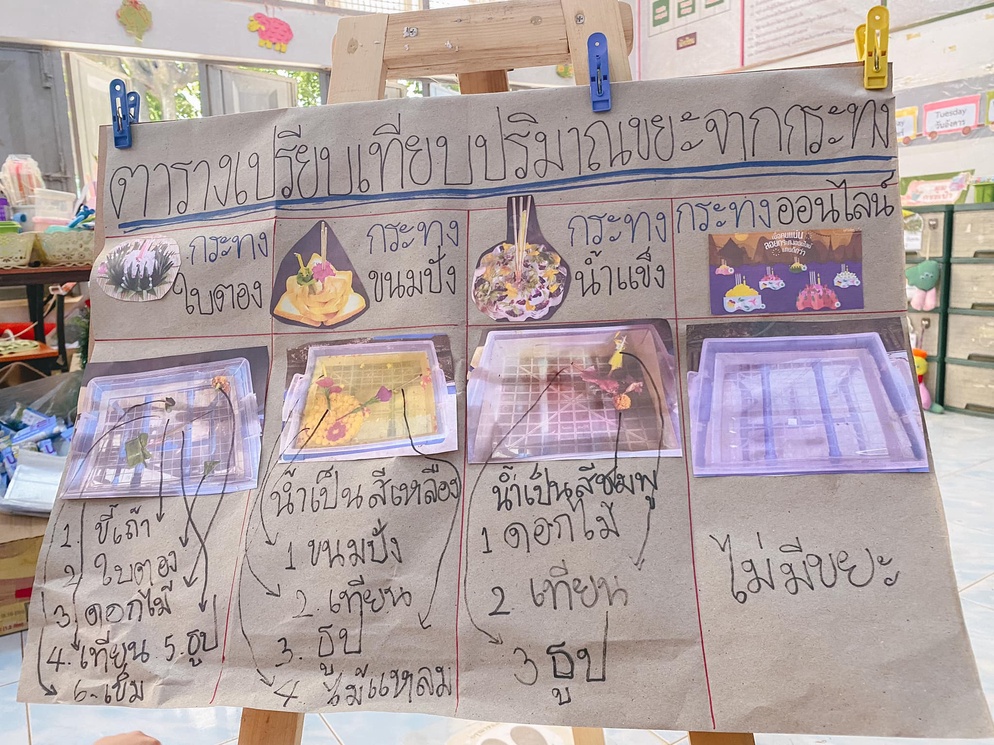 ตารางเปรียบเทียบปริมาณขยะจากกระทง
กระทง
ใบตอง
กระทง
ขนมปัง
กระทง
น้ำแข็ง
กระทงออนไลน์
1. ขี้เถ้า
2 ใบตอง
3. ดอกไม้
4. เทียน 5. ธูป
6. เข็ม
น้ำเป็นสีเหลือง
1 ขนมปัง
2. เทียน
3. ธูป
4. ไม้แหลม
น้ำเป็นสีชมพู
1 ดอกไม้
2 เทียน
3 ธูป
ไม่มีขยะ
Tuesday
วันอังคาร